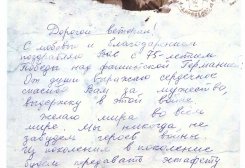 Дорогой ветеран!
С любовью и благодарностью
поздравляю Вас с 75-летием
Победы над фашистской Германией!
От души выражаю сердечное
спасибо Вам за мужество,
выдержку в этой войне.
желаю мира во всём
мире мы никогда не
забудем героев войны.
Из поколения в поколение
будем предавать эстафету